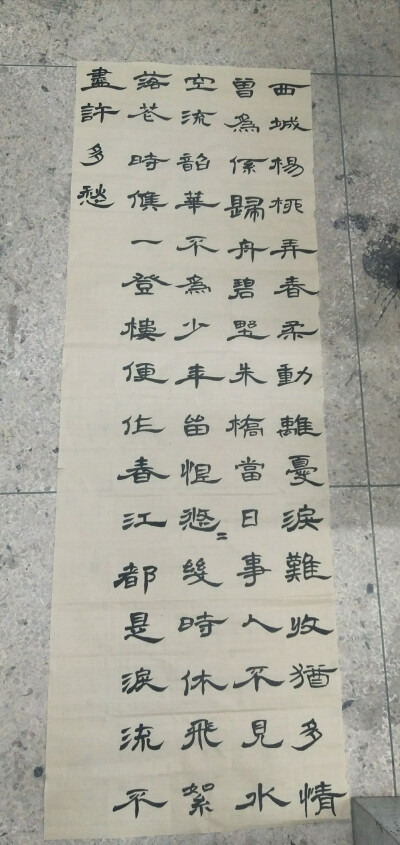 西城楊柳弄春柔動離憂淚難收猶多情
曾為係歸舟碧野朱橋當日事人不見水
空流韶華不為少年留恨悠〻幾時休飛絮
落花時候一登樓便作春江都是淚流不
盡許多愁